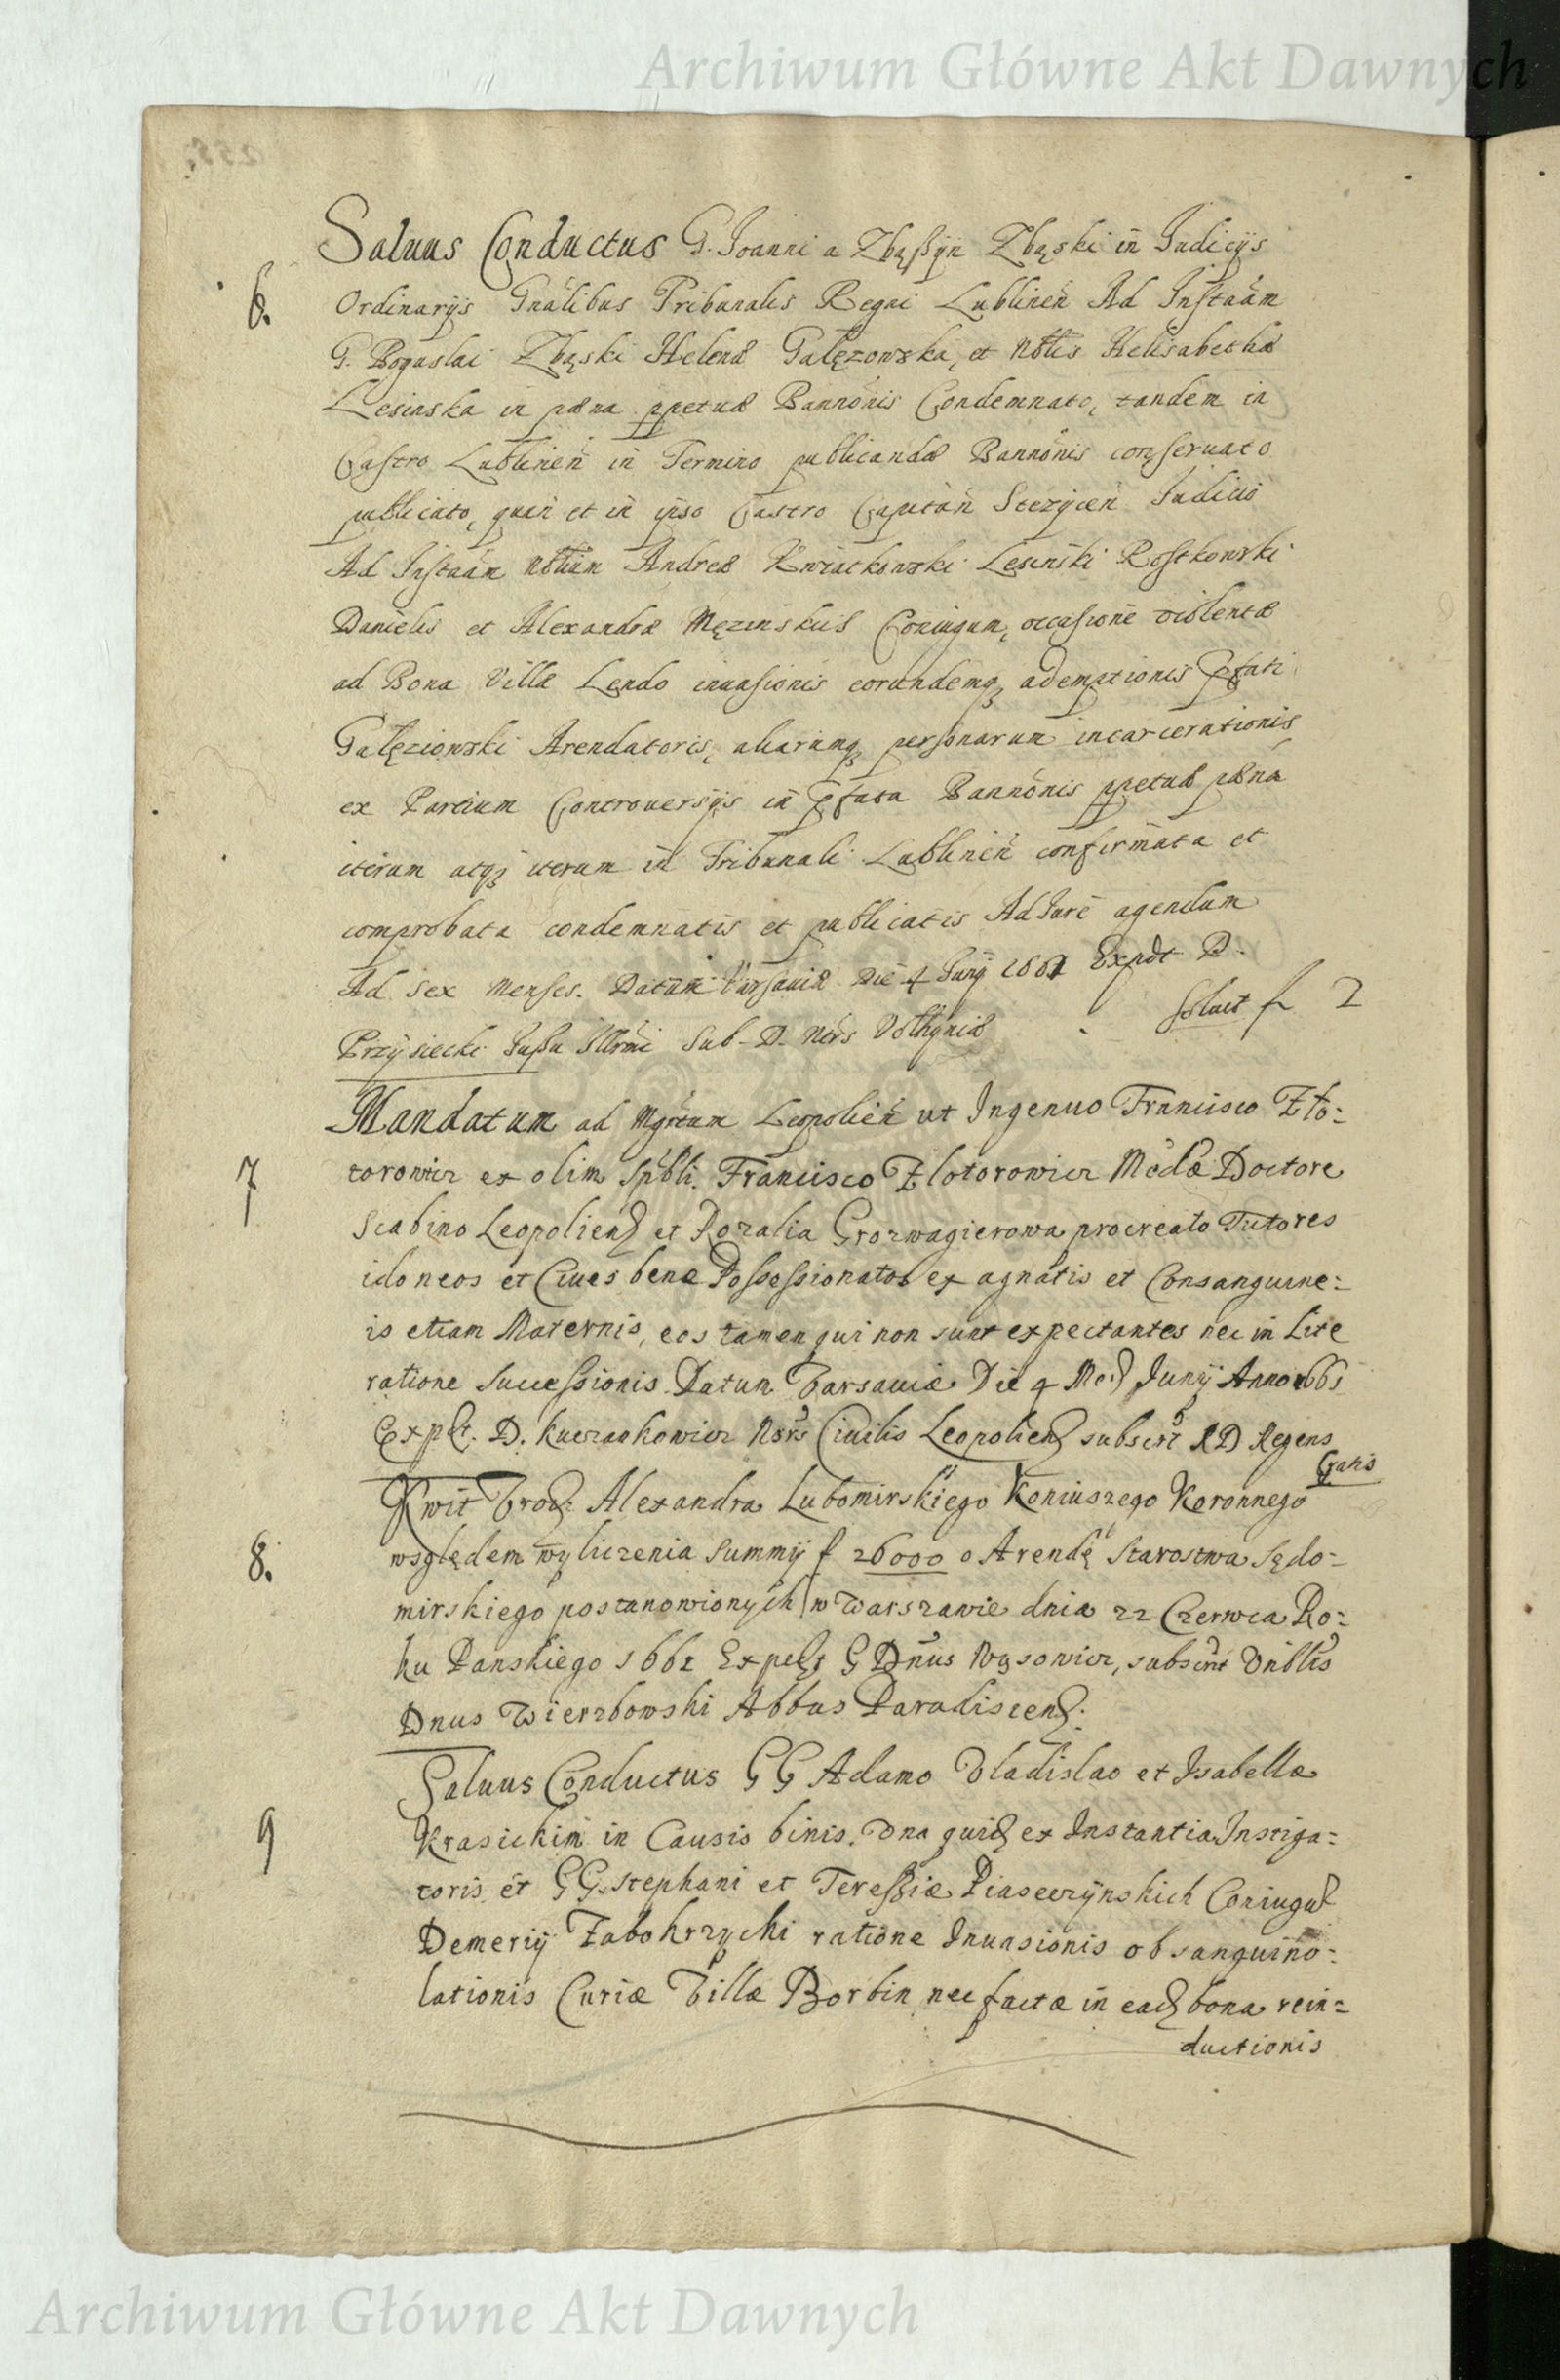 Archiwum Główne Akt Dawnych
Saluus Conductus G. Joanni a Zbąßÿn Zbąski in Judicijs
6. Ordinarijs Gnālibus Tribunalis Regni Lublinen̄ Ad Instaām
G. Boguslai Zbąski Helenæ Gałęzowska, et Nōblis Helisabethæ
Lesinska in pæna ppetuæ Bannōnis Condemnato, tandem in
Castro Lublinen̄ in Termino publicandæ Bannōnis conseruato
publicato, quin et in ipso Castro Capitān Stezÿcen̄ Judicio
Ad Instaām Nōblium Andreæ Kwiatkowski Lesinski Rostkowski
Danielis et Alexandræ Męzinskiis Coniugum, occasione violentæ
ad Bona Villæ Lendo inuasionis eorundemq₃ ademptionis Pfati
Gałęziowski Arendatoris, aliarumq₃ personarum incarcerationis
ex Partium Controuersijs in pfata Bannōnis ppetuæ pæna
iterum atq₃ iterum in Tribunali Lublinen̄ confirmata et
comprobata condemnatis et publicatis Ad Jure agendum
Ad Sex Menses. Datum Varsauiæ Die 4 Junÿ 1661 Expdt D.
Przÿsiecki Jußu Illrmi Sub-D. Ners Volhÿniæ Soluit f 2
Mandatum ad Mgrtum Leopolien̄ ut Ingenuo Francisco Zło=
7 torowicz ex olim Spbli. Francisco Zlotorowicz Medæ Doctore
Scabino Leopolien et Rozalia Grozwagierowa procreato Tutores
idoneos et Ciues bene Possessionatos ex agnatis et Consanguine=
is etiam Maternis, eos tamen qui non sunt expectantes nec in Lite
ratione Successionis. Datum Varsauiæ Die 4 Men Junÿ Anno 1661
Exp̄t. D. Kuczankowicz Nors Ciuilis Leopolien subscrt RD Regens
Gratis
Kwit Wroc: Alexandra Lubomirskiego Koniuszego Koronnego
8. wsględem wÿliczenia Summÿ f 26000 o Arendę Starostwa Sędo=
mirskiego postanowionych w Warszawie dnia 22 Czerwca Ro=
ku Panskiego 1661 Expedt G Dnūs Wysowicz, subscrit Vniblis
Dnus Wierzbowski Abbas Paradiscen:
Saluus Conductus GG Adamo Vladislao et Isabellæ
9 Krasickim in Causis binis. Vna quid ex Instantia Instiga=
toris et GG. Stephani et Teressiæ Piaseczÿnskich Coniugū
Demerij Zabokrzycki ratione Inuasionis obsanguino=
lationis Curiæ Villæ Borbin nec factæ in ead bona rein=
ductionis
Archiwum Główne Akt Dawnych